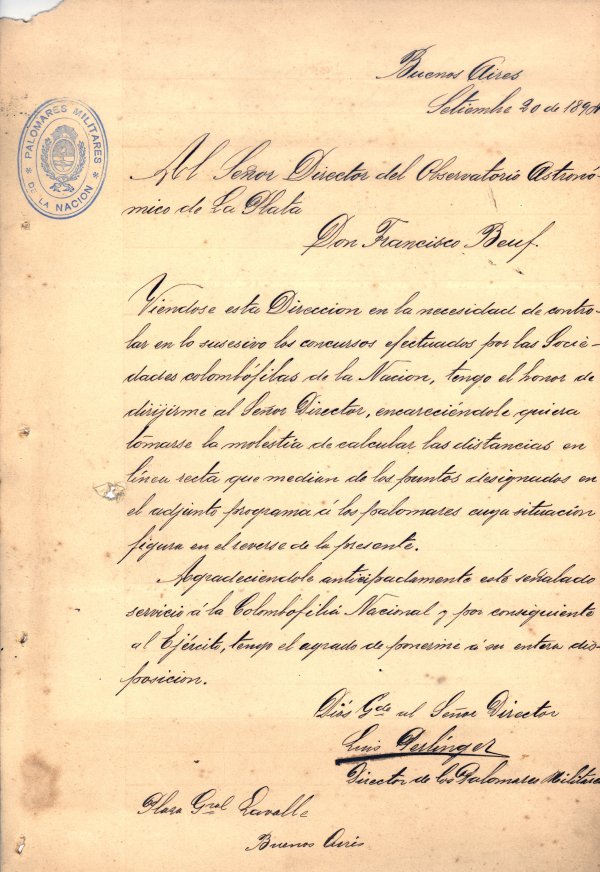 Buenos Aires
Setiembre 20 de 1894
PALOMARES MILITARES
DE LA NACION
Al Señor Director del Observatorio Astronó-
mico de La Plata
Don Francisco Beuf.
Viendose esta Direccion en la necesidad de contro-
lar en lo susesivo los concursos efectuados por las Socie-
dades colombófilas de la Nacion, tengo el honor de
dirijirme al Señor Director, encareciéndole quiera
tomarse la molestia de calcular las distancias en
línea recta que median de los puntos designados en
el adjunto programa á los palomares cuya situacion
figura en el reverse de la presente.
Agradeciendole anticipadamente este señalado
servicio á la Colombofilia Nacional y por consiguiente
al Ejército, tengo el agrado de ponerme á su entera dis-
posicion.
Dios Gde al Señor Director
Luis Derlinger
Director de los Palomares Militares
Plaza Gral Lavalle
Buenos Aires